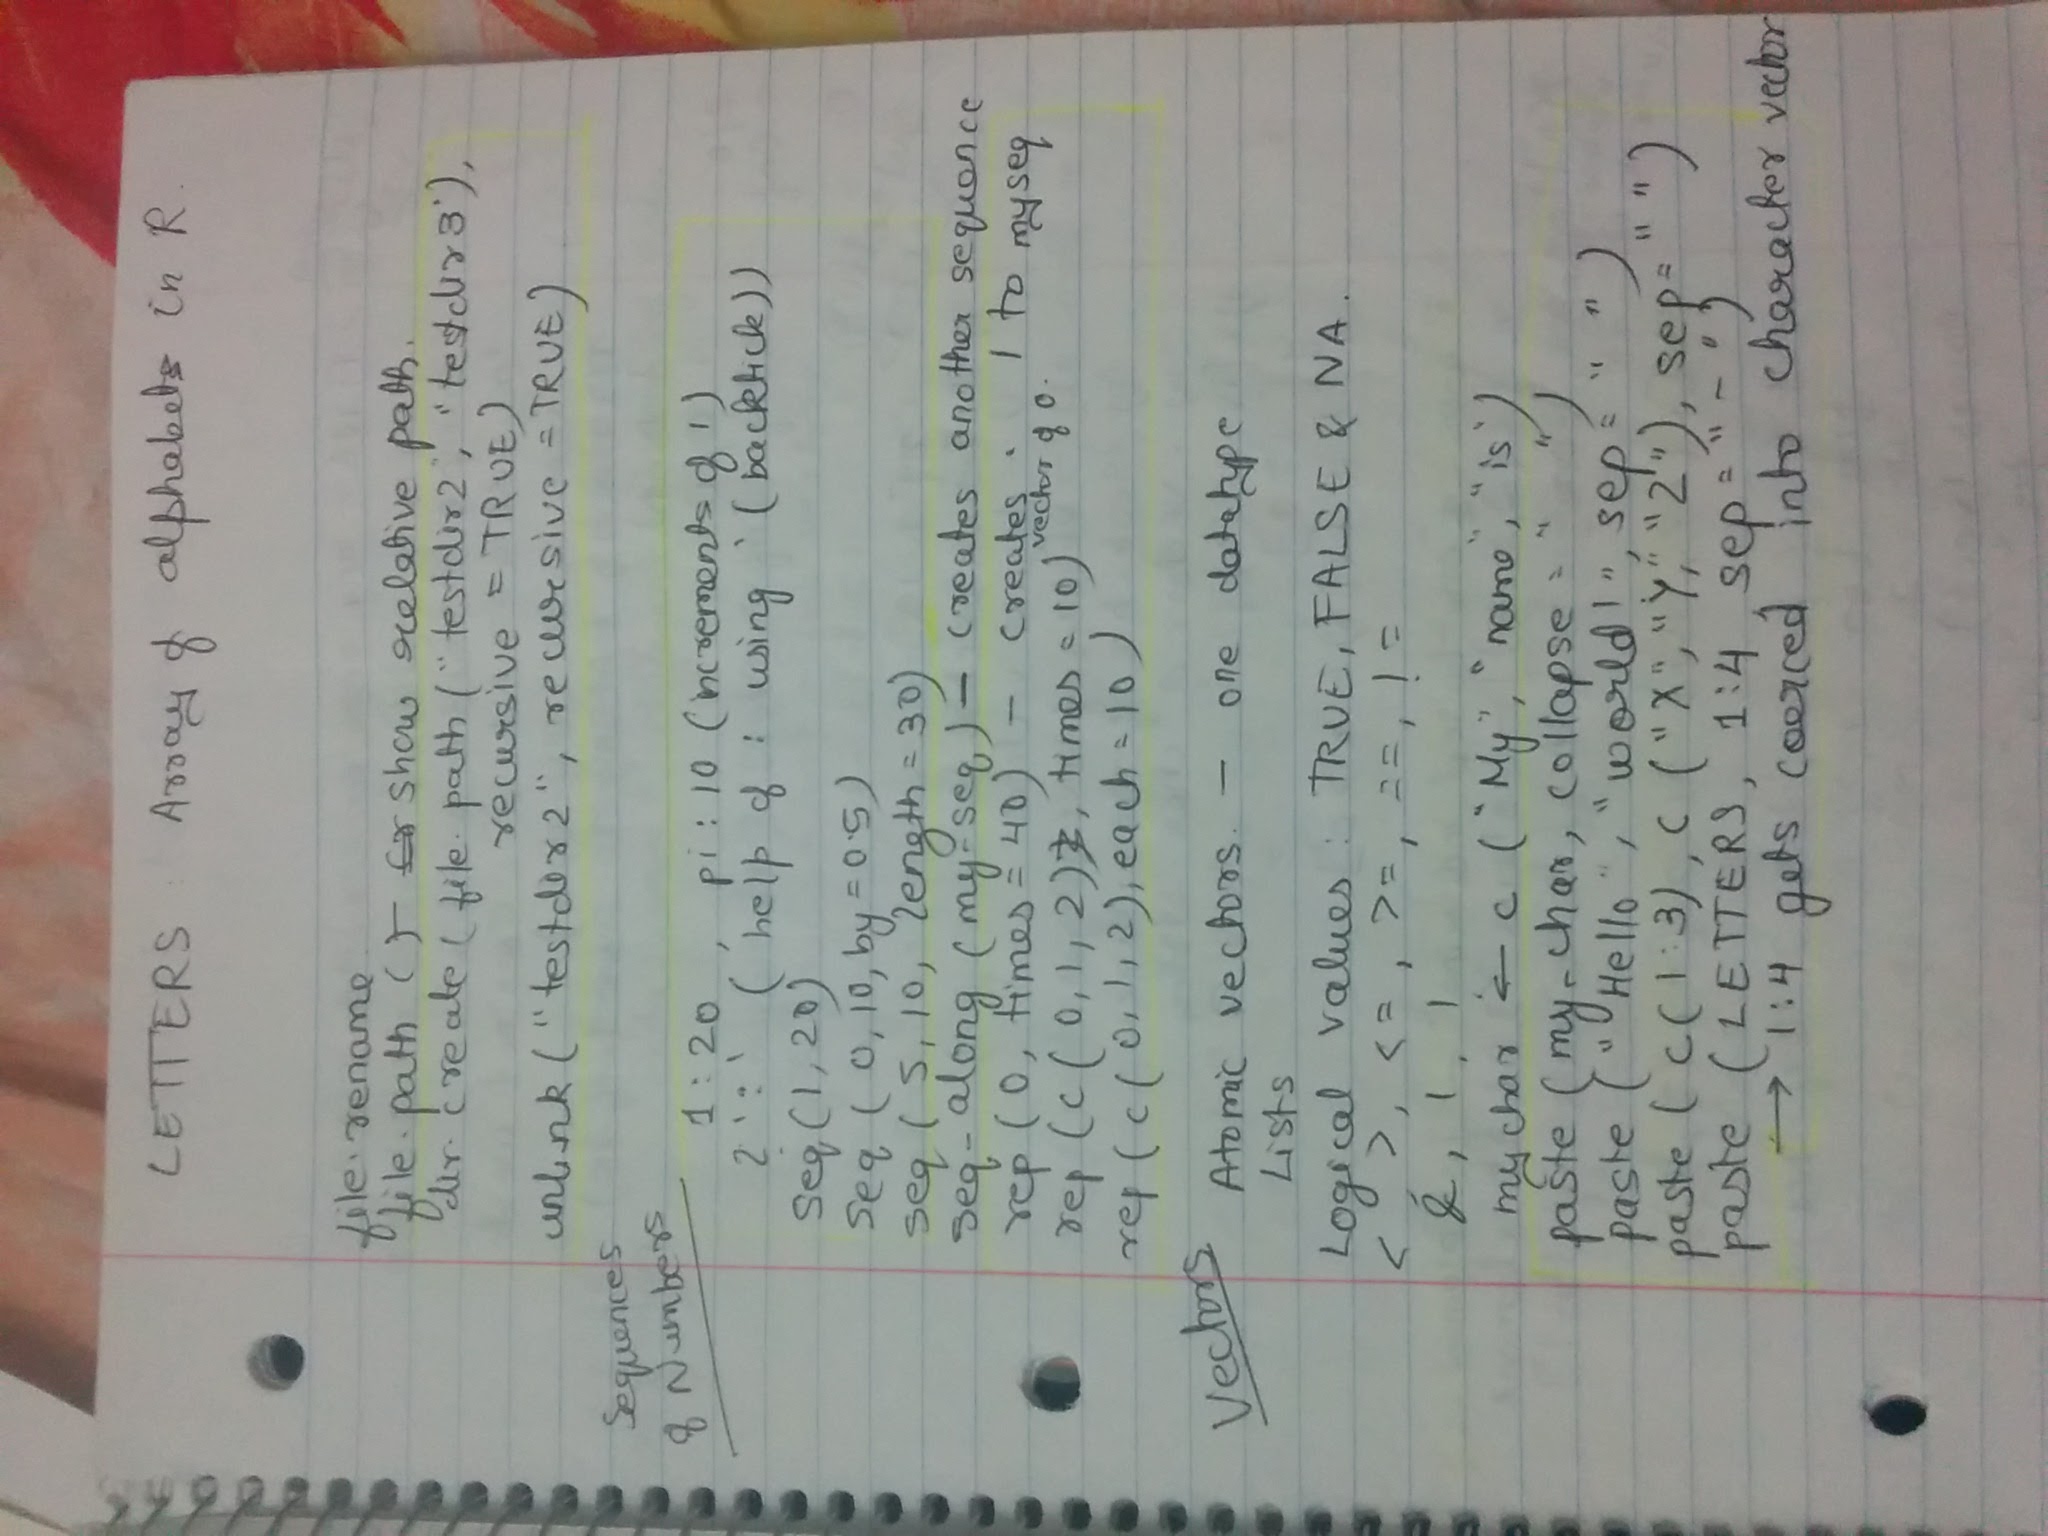 LETTERS : Array of alphabets in R.
file.rename
file.path () - show relative path.
dir.create (file.path ("testdir2", "testdir3"),
recursive = TRUE)
unlink ("testdir2", recursive = TRUE)
Sequences
of Numbers
1:20 , pi:10 (increments of 1)
2 `:` (help of : using ` (backtick))
seq (1, 20)
seq (0, 10, by = 0.5)
seq (5, 10, length = 30)
seq-along (my-seq) - creates another sequence
rep (0, times = 40) - creates 1 to my seq
vector of 0.
rep (c (0, 1, 2), times = 10)
rep (c (0, 1, 2), each = 10)
Vectors
Atomic vectors. - one datatype
Lists
Logical values : TRUE, FALSE & NA.
< >, <=, >=, ==, !=
&, |, !
mychar <- c ("My", "name", "is")
paste (my-char, collapse = " ")
paste ("Hello", "world!", sep = " ")
paste (c(1:3), c ("X", "Y", "Z"), sep = "")
paste (LETTERS, 1:4 sep = "-")
→ 1:4 gets coerced into character vector